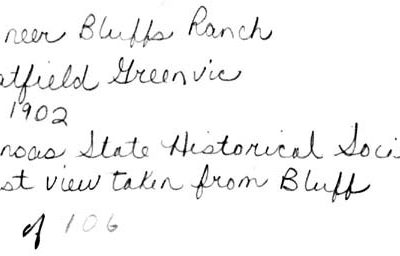 neer Bluffs Ranch
atfield Greenvic
1902
nsas State Historical Soci
st view taken from Bluff
of 106